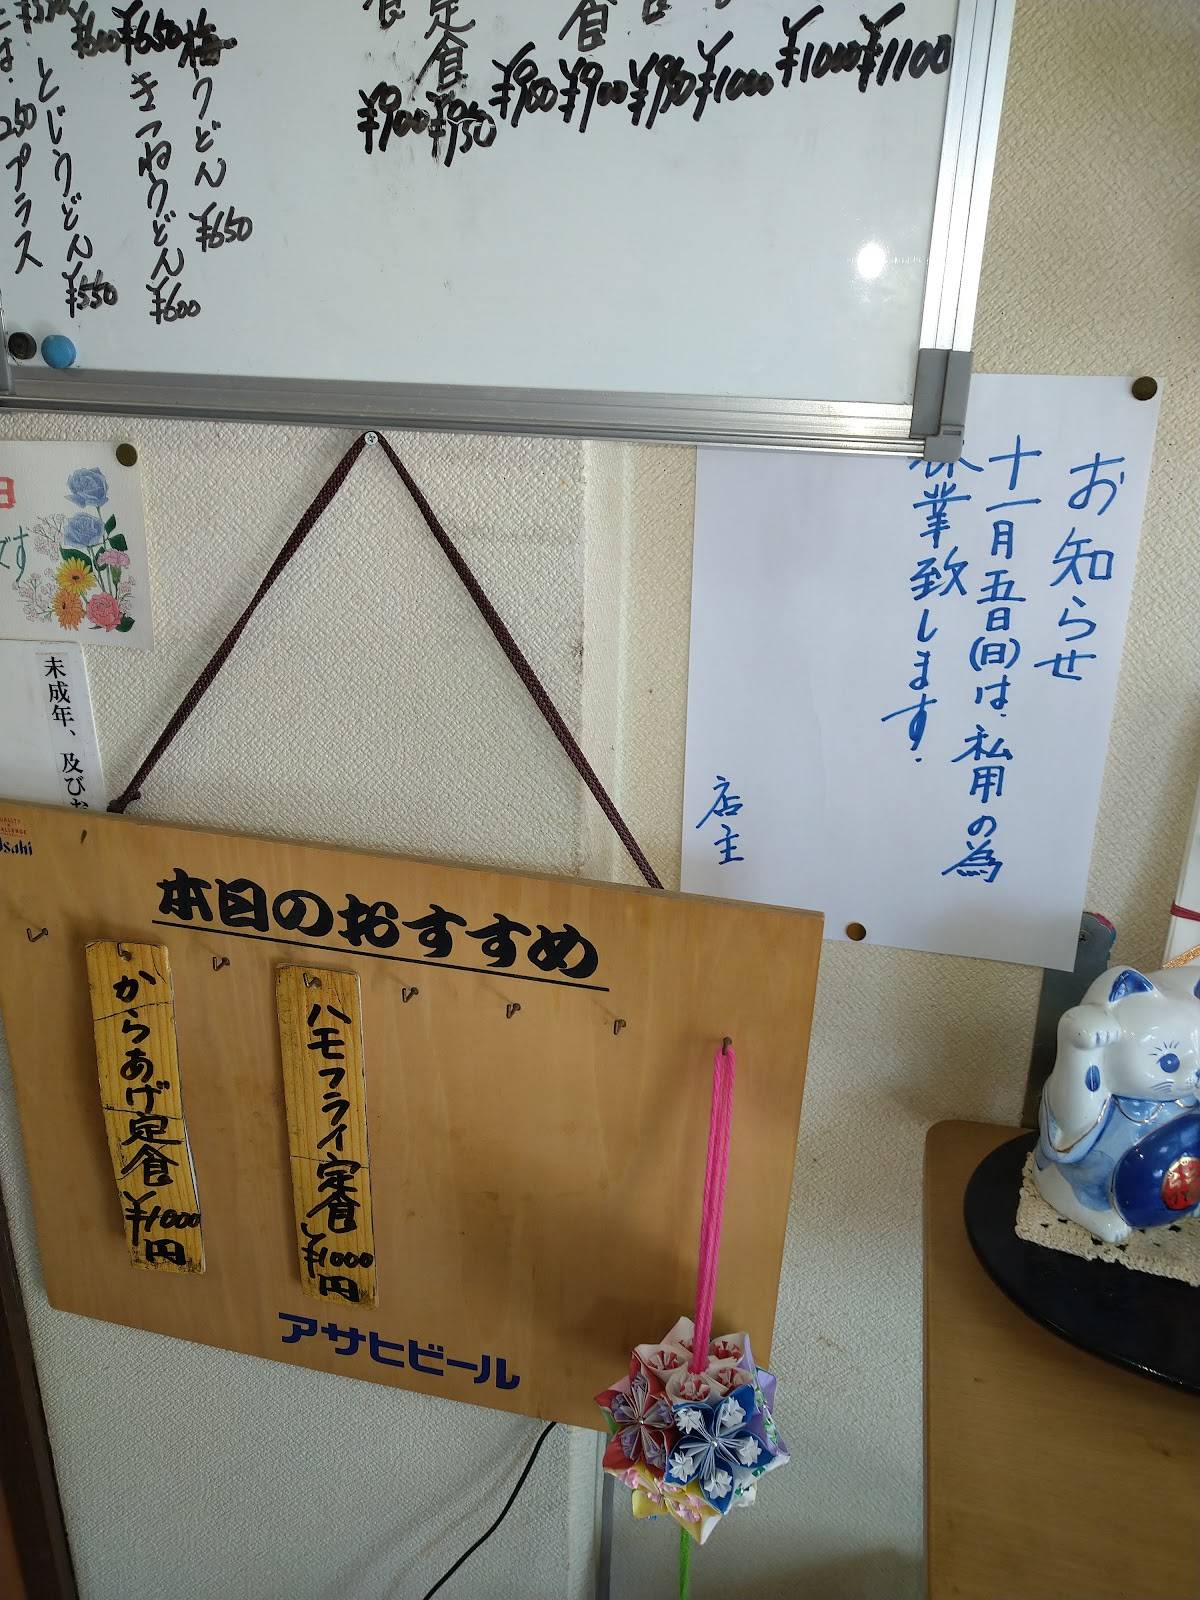 ¥1100
¥1000
¥1000
¥950
¥900
¥900
定食 ¥950
食 ¥900
梅うどん ¥650
¥650 きつねうどん ¥600
¥600 とじうどん ¥550
は、250プラス
お知らせ
十一月五日(日)は、私用の為
休業致します.
店主
日
です
未成年、及びお
Asahi
本日のおすすめ
からあげ定食 ¥1000円
ハモフライ定食 ¥1000円
アサヒビール